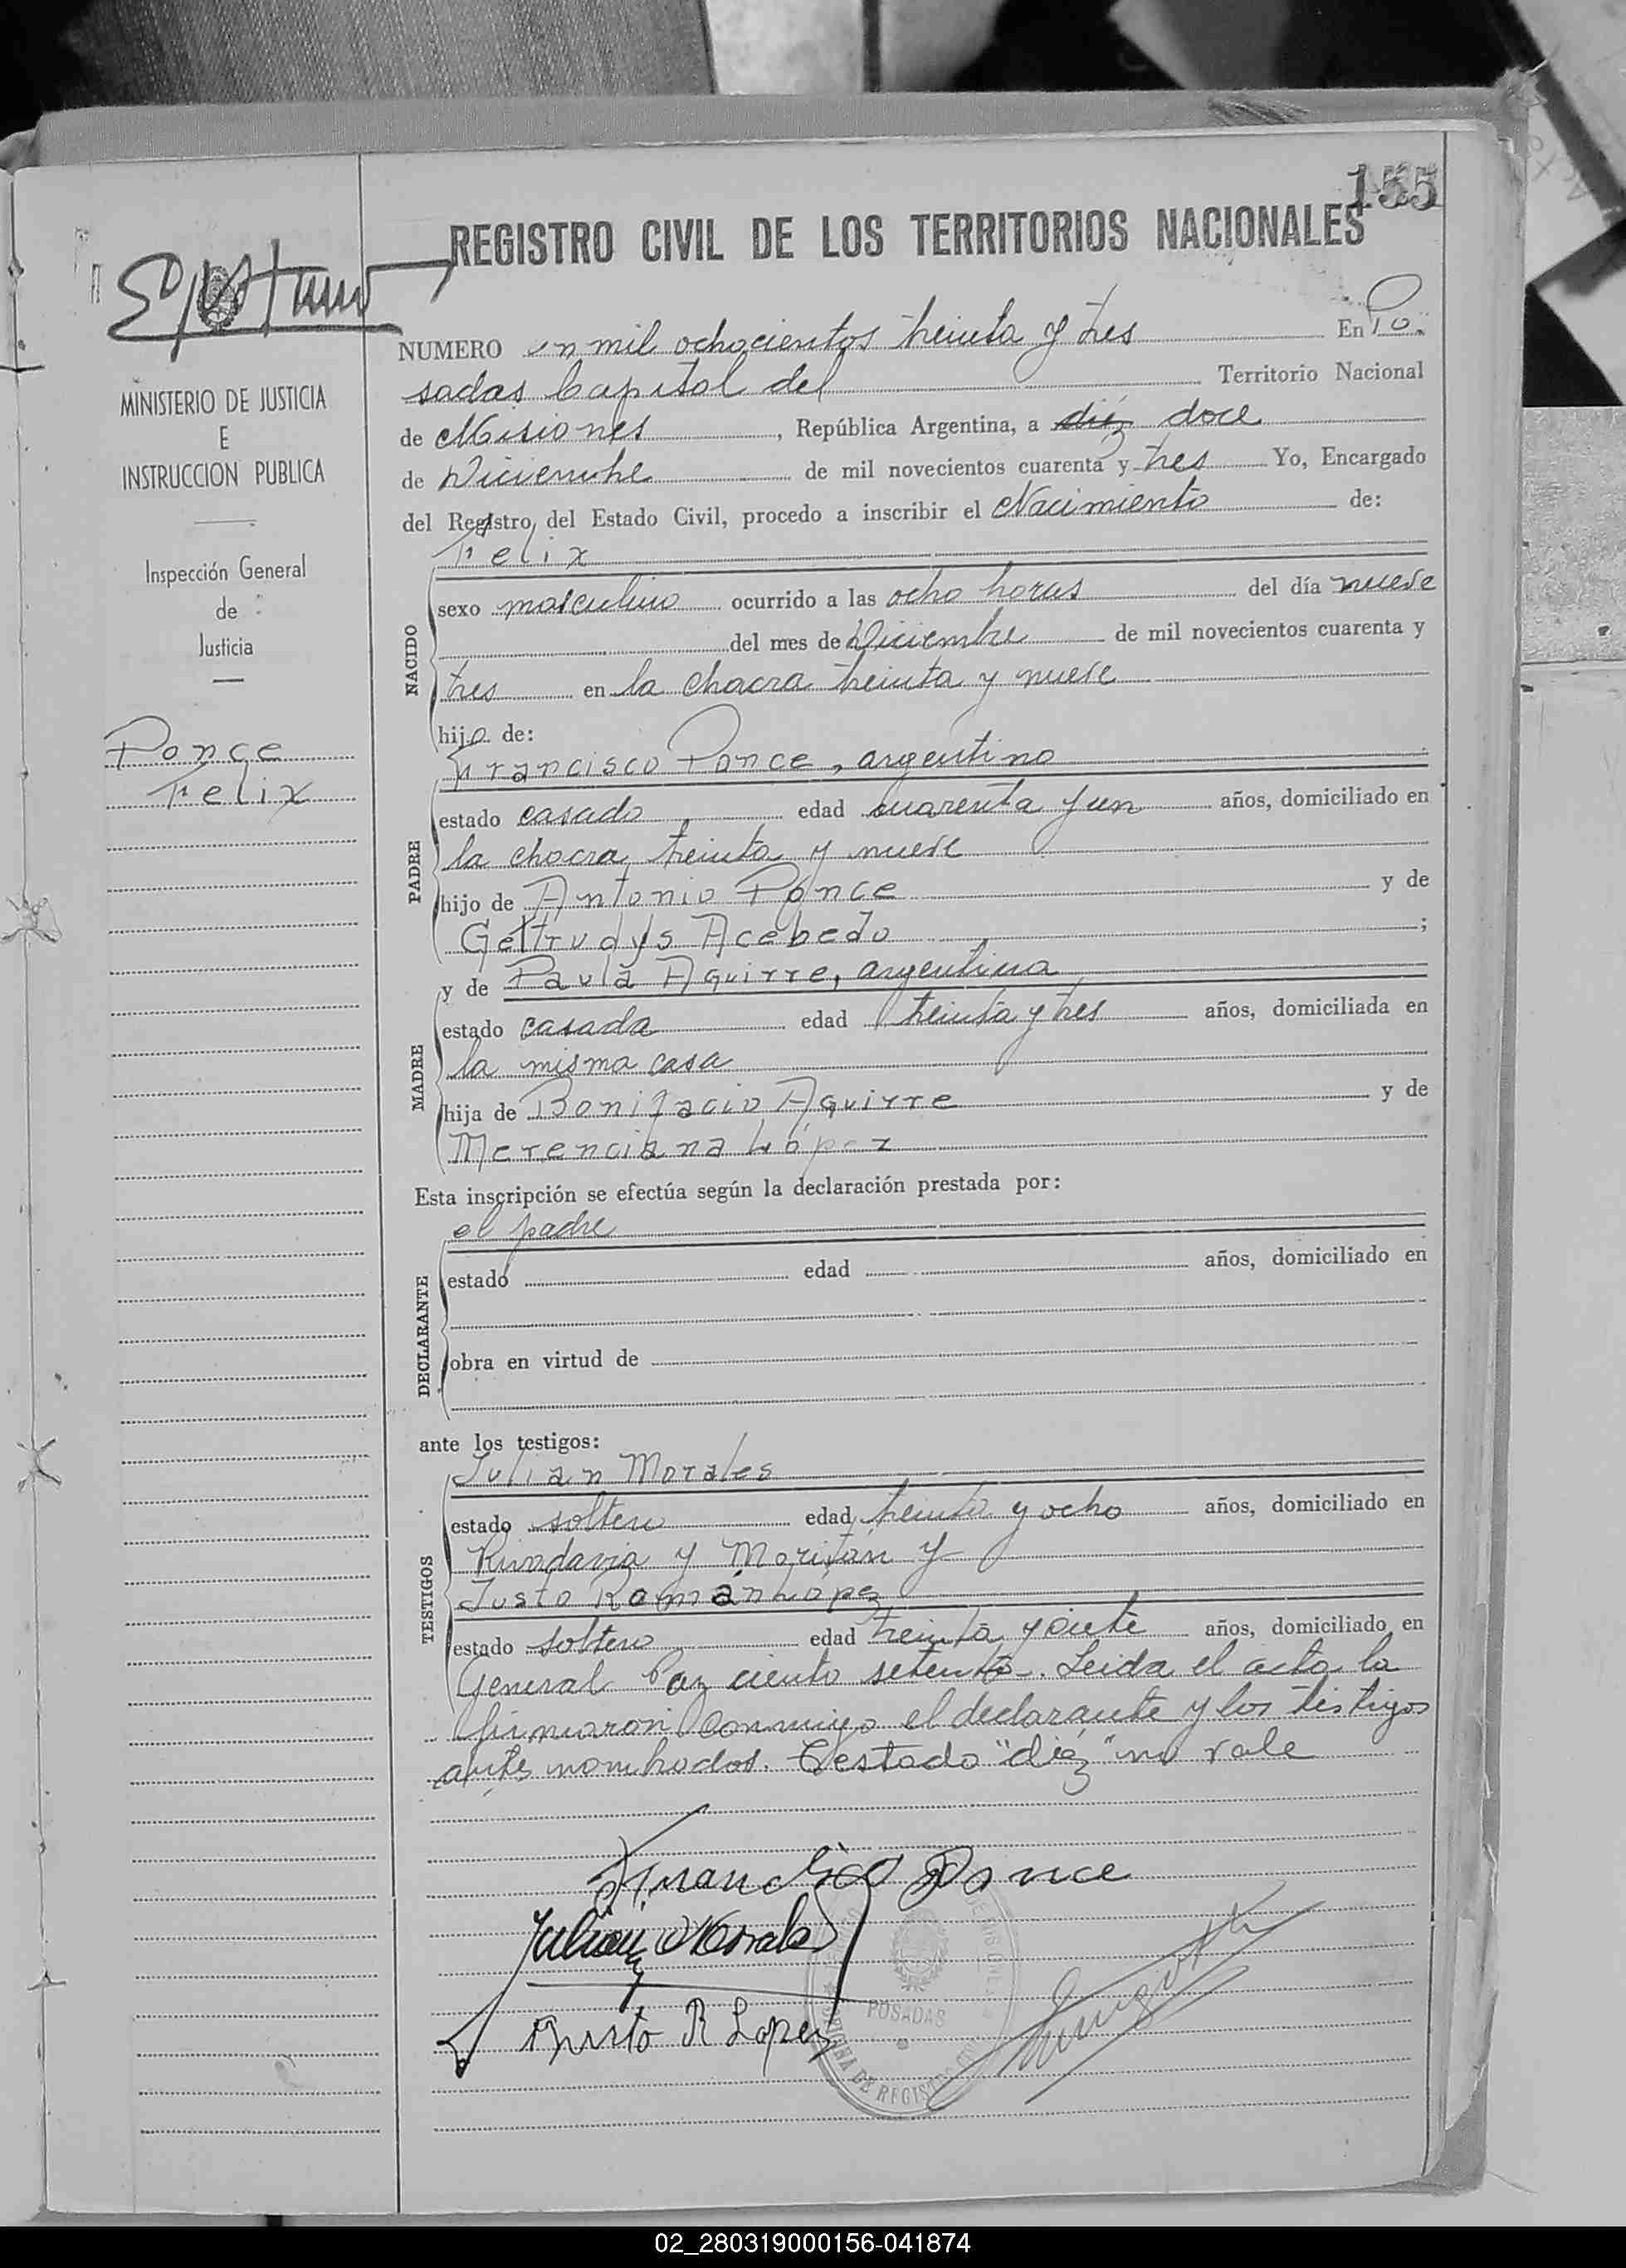 155
REGISTRO CIVIL DE LOS TERRITORIOS NACIONALES
MINISTERIO DE JUSTICIA
E
INSTRUCCION PUBLICA
Inspección General
de
Justicia
Ponce
Felix
NUMERO un mil ochocientos treinta y tres En Po-
sadas Capital del Territorio Nacional
de Misiones, República Argentina, a diéz doce
de Diciembre de mil novecientos cuarenta y tres Yo, Encargado
del Registro del Estado Civil, procedo a inscribir el Nacimiento de:
Felix
NACIDO
sexo masculino ocurrido a las ocho horas del día nueve
del mes de Diciembre de mil novecientos cuarenta y
tres en la chacra treinta y nueve
hijo de:
Francisco Ponce, argentino
PADRE
estado casado edad cuarenta y un años, domiciliado en
la chacra treinta y nueve
hijo de Antonio Ponce y de
Gettrudys Acebedo ;
y de Paula Aguirre, argentina
MADRE
estado casada edad treinta y tres años, domiciliada en
la misma casa
hija de Bonifacio Aguirre y de
Merenciana López
Esta inscripción se efectúa según la declaración prestada por:
el padre
DECLARANTE
estado edad años, domiciliado en
obra en virtud de
ante los testigos:
Julian Morales
TESTIGOS
estado soltero edad treinta y ocho años, domiciliado en
Rivadavia y Moritán y
Justo Román López
estado soltero edad treinta y siete años, domiciliado en
General Paz ciento setenta. Leida el acta la
firmaron conmigo el declarante y los testigos
antes nombrados. Testado "diéz" no vale
Francisco Ponce
Julian Morales
Justo R Lopez
POSADAS
OFICINA DE REGISTRO
02_280319000156-041874